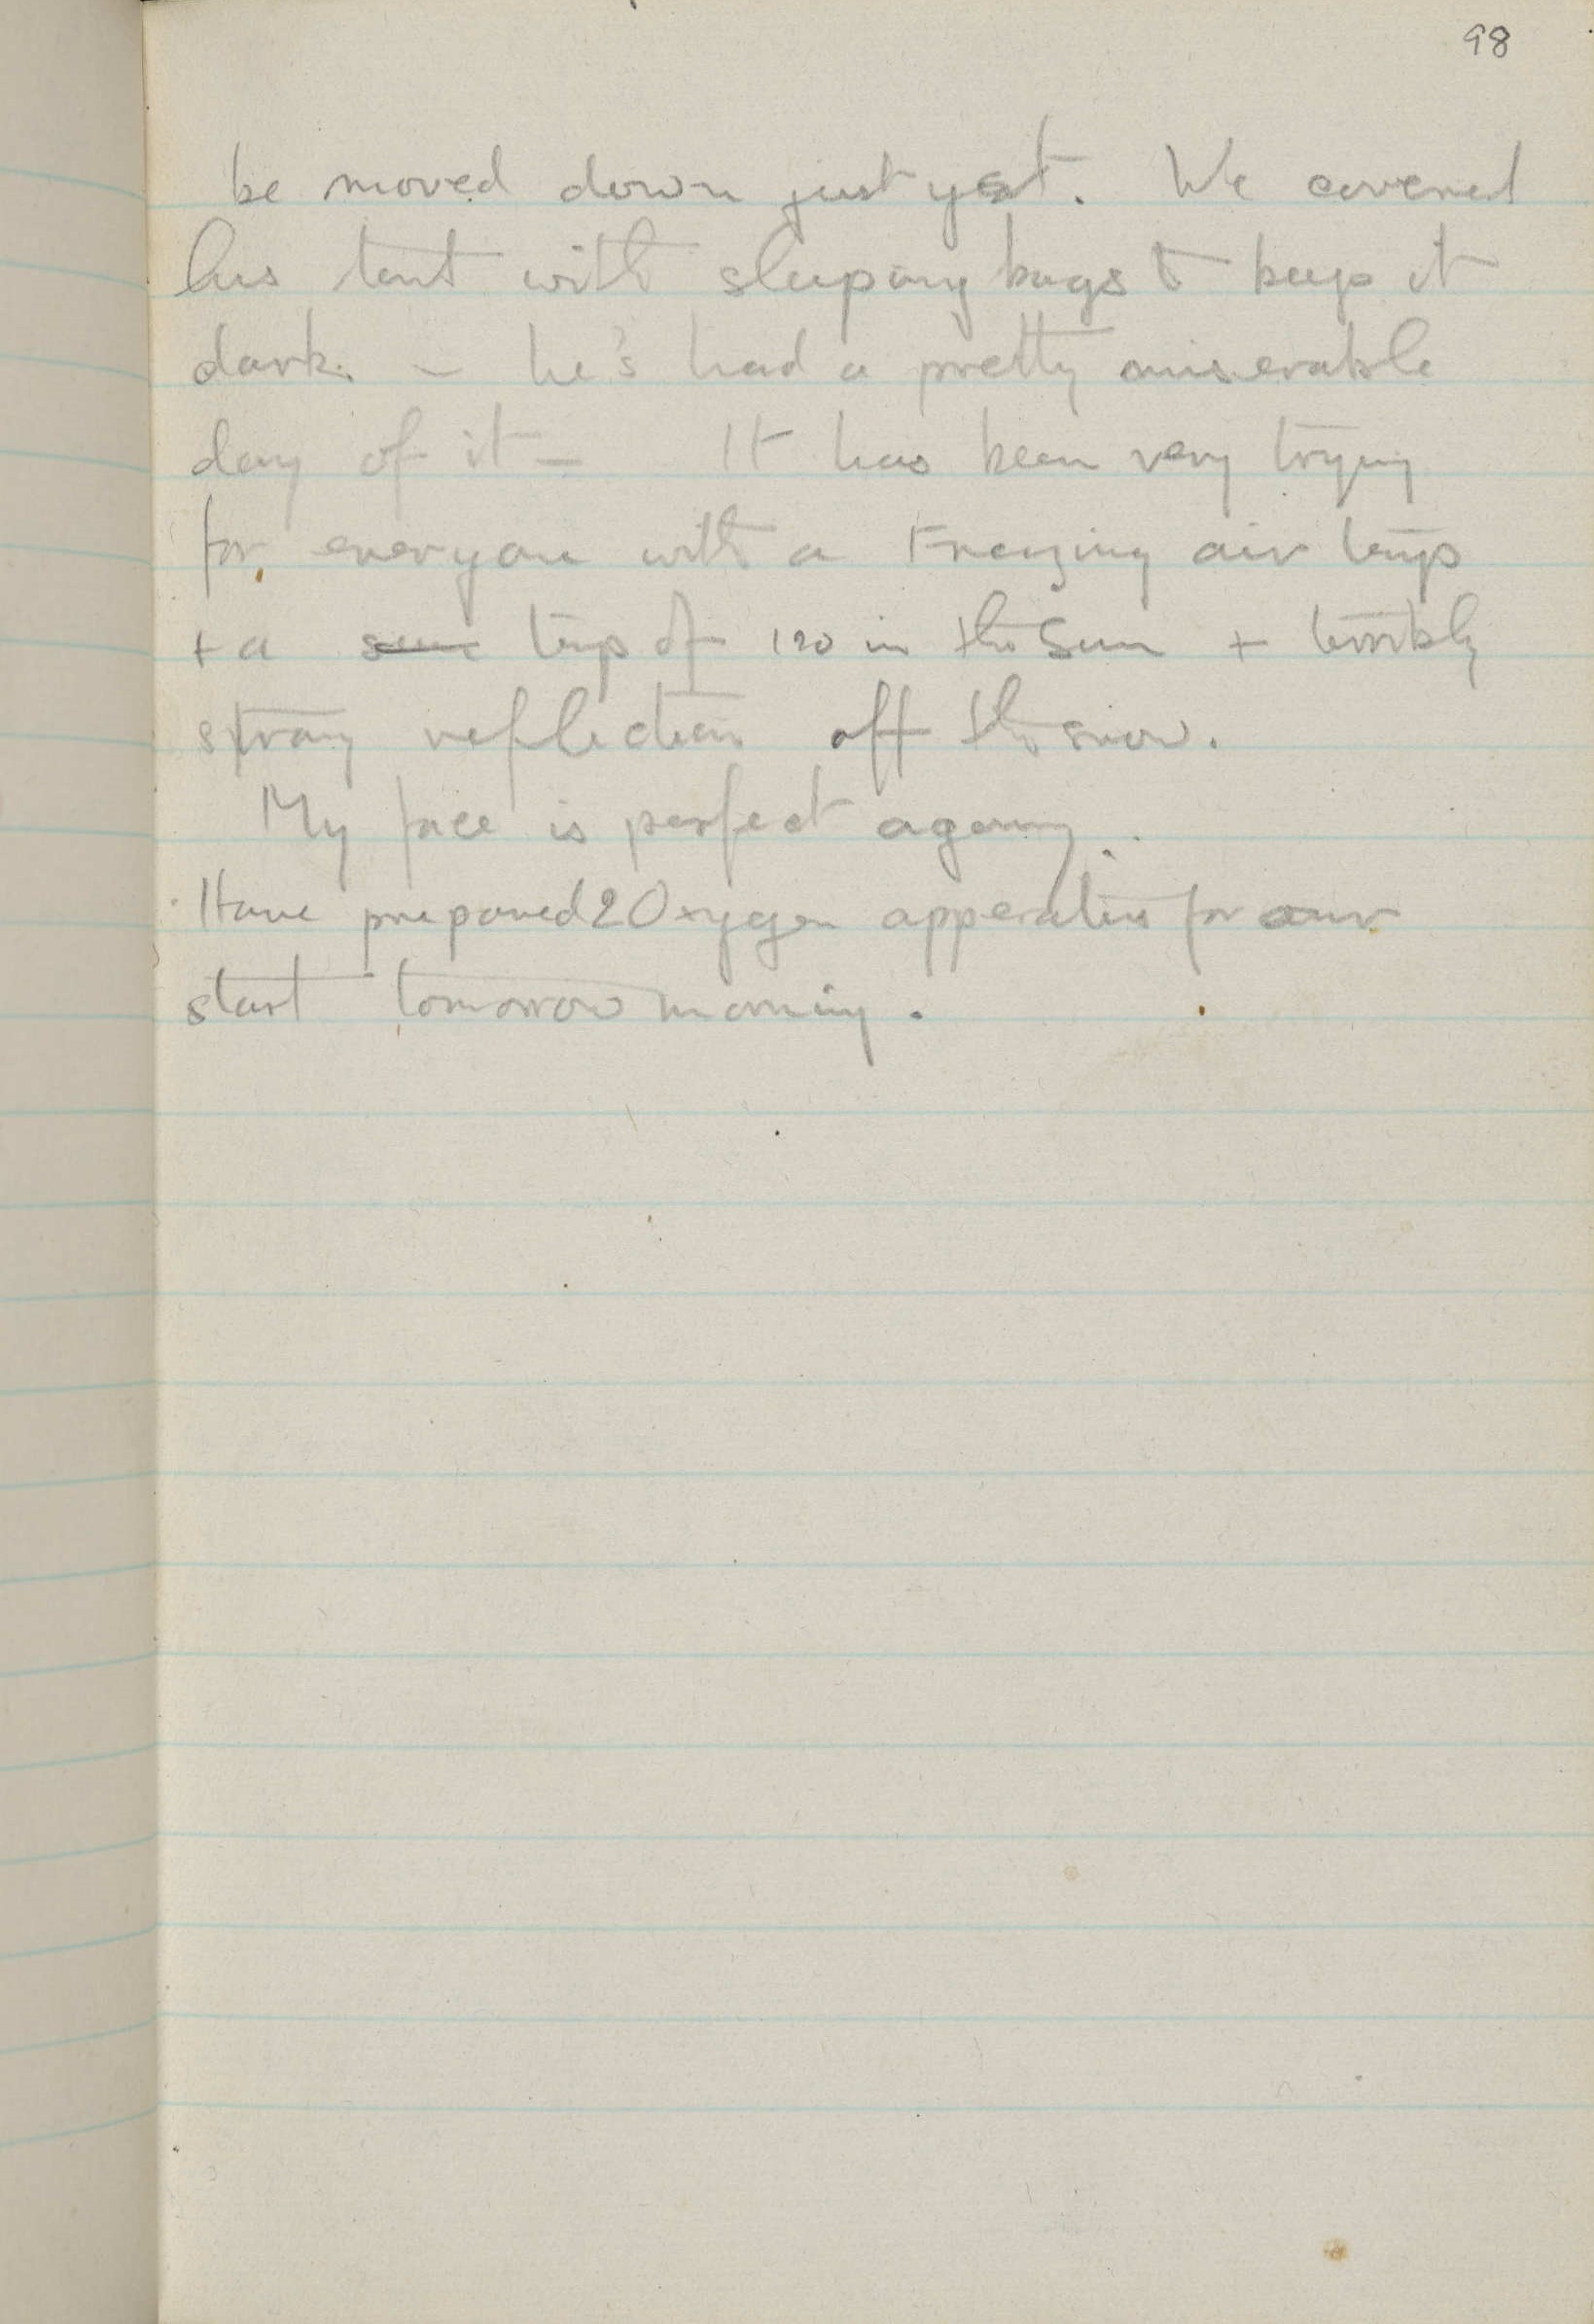 98
be moved down just yet. We covered
his tent with sleeping bags to keep it
dark. – he's had a pretty miserable
day of it – It has been very trying
for everyone with a Freezing air temp
+ a temp of 120 in the Sun + terribly
strong reflection off the snow.
My face is perfect agony.
Have prepared 2 Oxygen apperatus for our
start tomorrow morning.